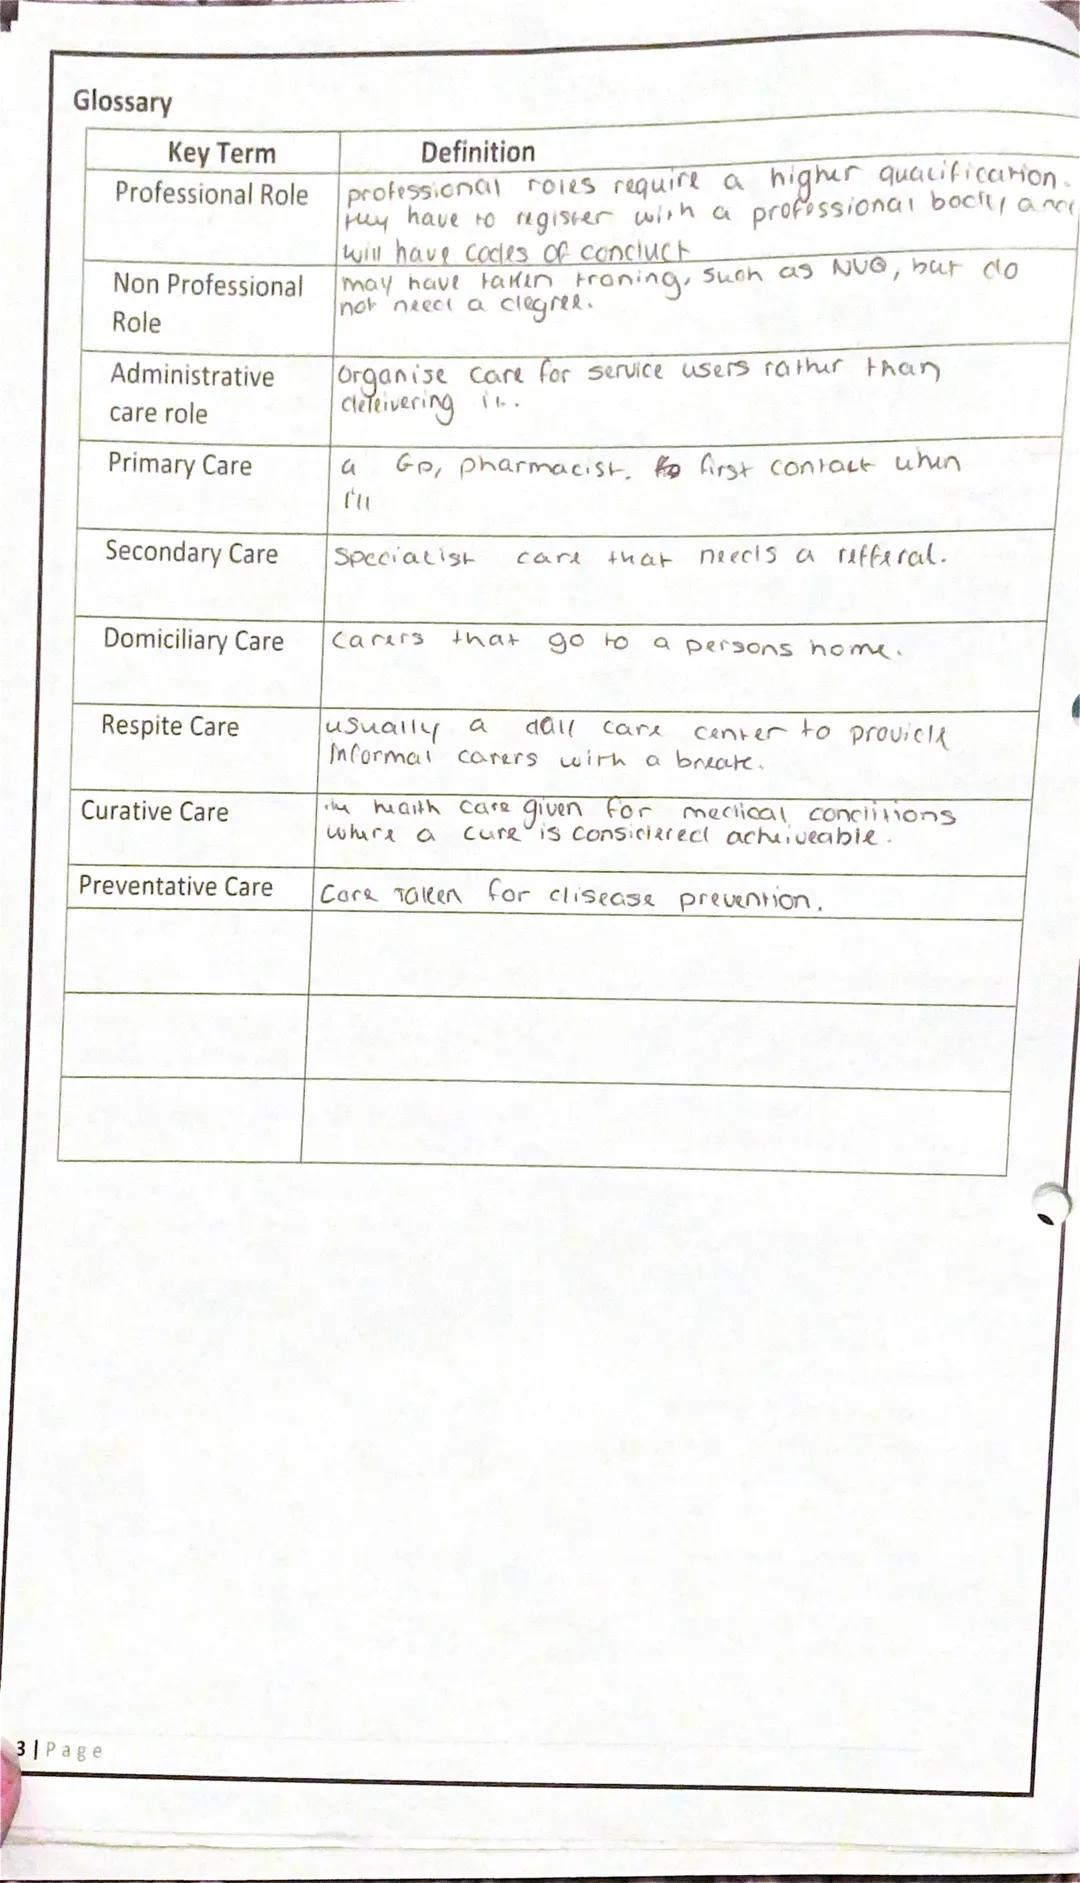 Glossary
Key Term Definition
Professional Role professional roles require a higher qualification.
they have to register with a professional body, and
will have codes of conduct
Non Professional may have taken traning, such as NVQ, but do
Role not need a degree.
Administrative Organise care for service users rather than
care role deleivering it.
Primary Care a GP, pharmacist. first contact when
ill
Secondary Care Specialist care that needs a refferal.
Domiciliary Care carers that go to a persons home.
Respite Care usually a care center to provide
informal carers with a break.
Curative Care health care given for medical conditions
where a cure is considered acheiveable.
Preventative Care Care Taken for disease prevention.
3 | Page